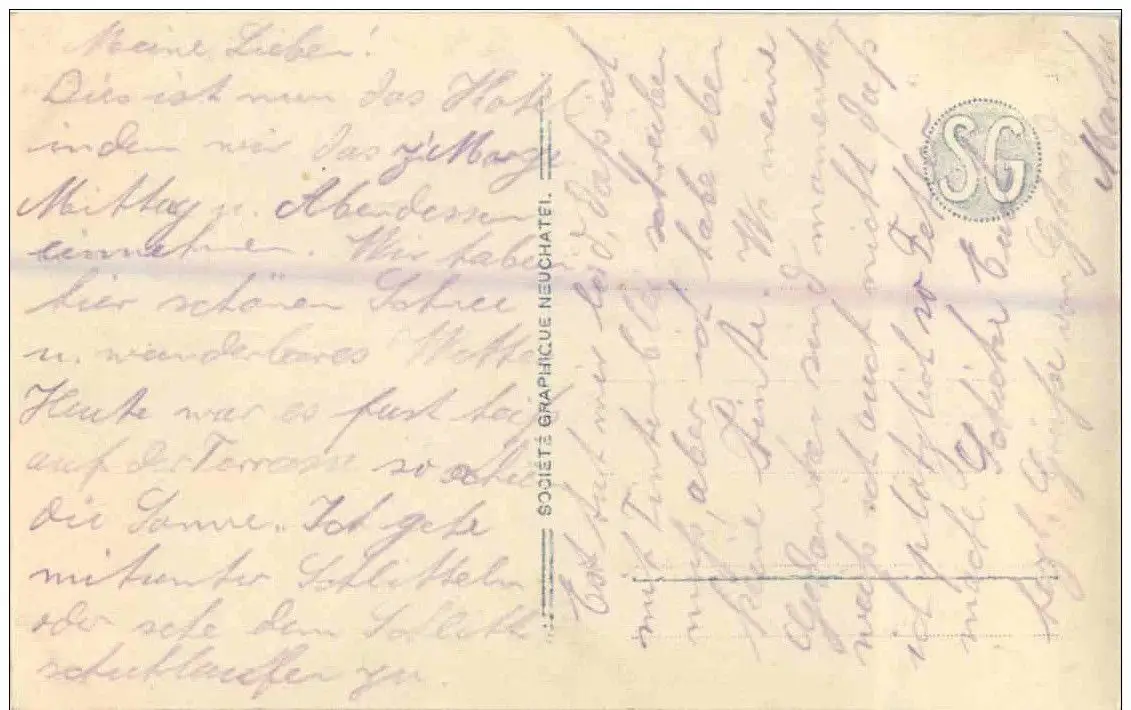 Meine Lieben!
Dies ist nun das Hotel
indem wir das z'Morge
Mittag u. Abendessen
einnehmen. Wir haben
hier schönen Schnee
u. wunderbares Wetter
Heute war es fast heiß
auf der Terrasse so schien
die Sonne. Ich gehe
mitunter Schlitteln
oder sehe dem Schlitt
schuhlaufen zu.
SOCIÉTÉ GRAPHIQUE NEUCHATEL.
SG
Es tut mir leid, daß ich
mit Tintenblei schreiben
muß, aber ich habe eben
keine Tinte. Wo meine
Gedanken sind momentan
weiß ich auch nicht daß
ich plötzlich so Fehler
mache. Herzliche
herzl. Grüße von Gstaad
Martha